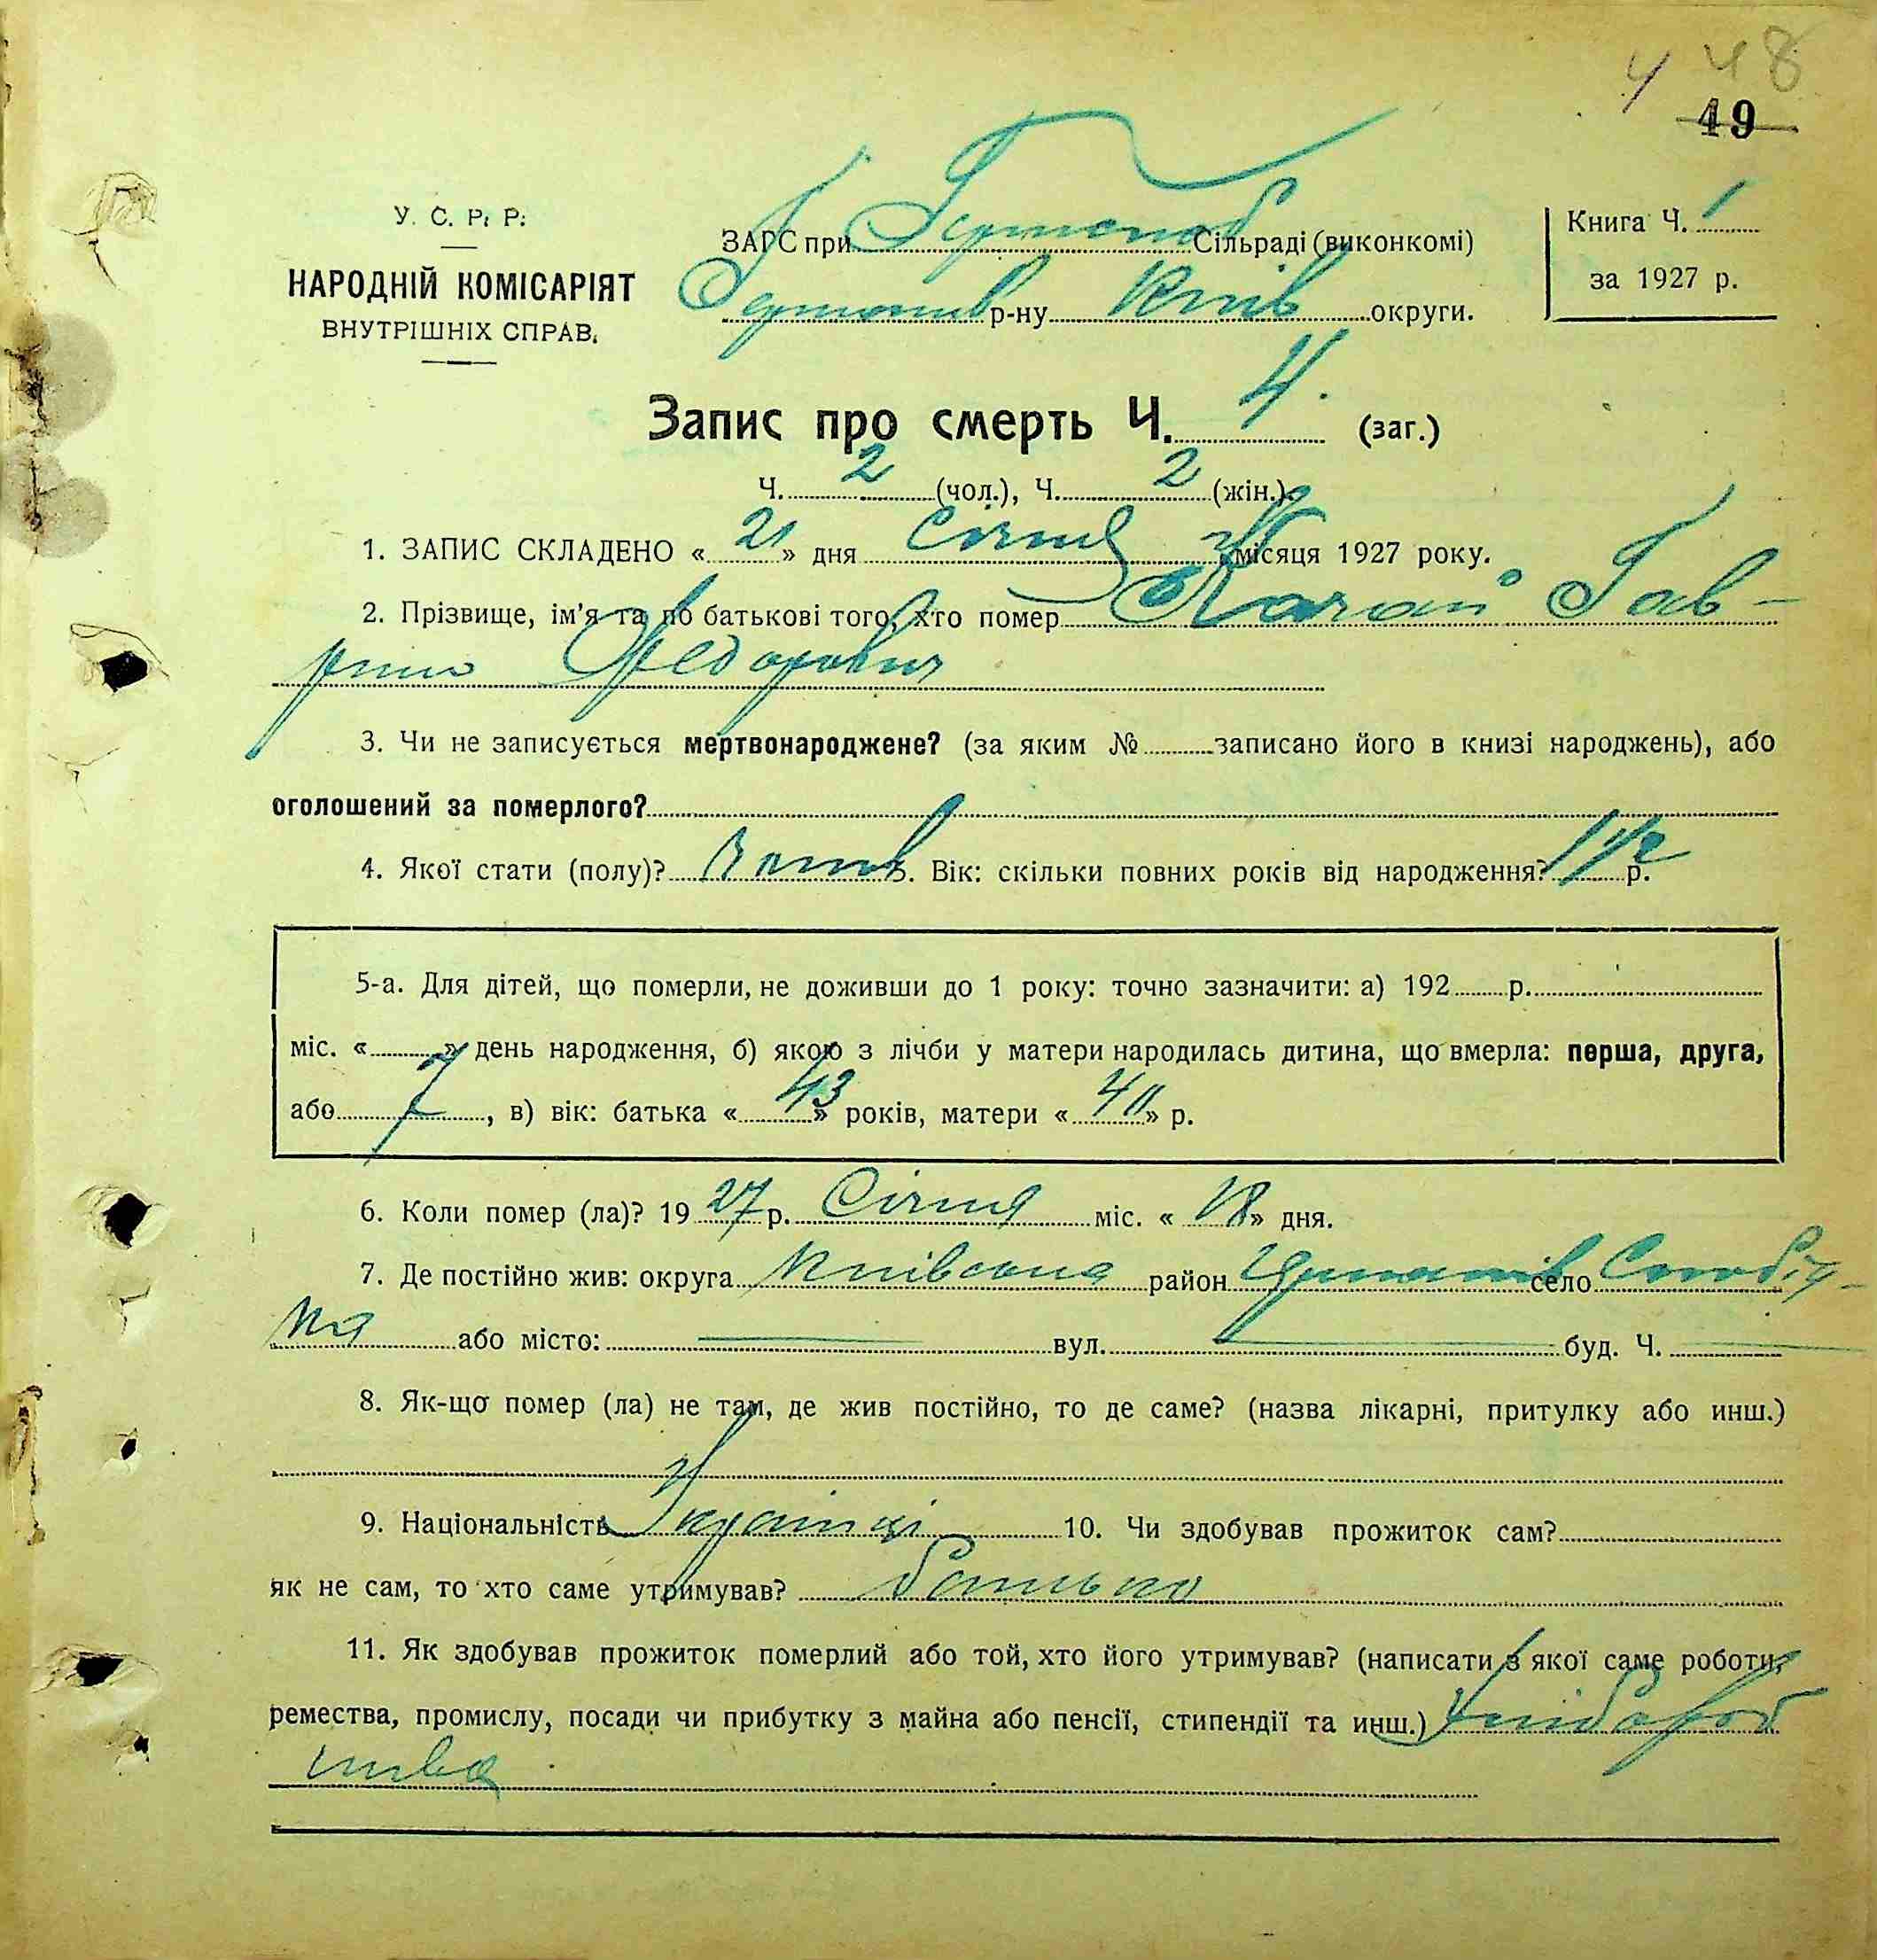 4 48
49
У. С. Р. Р.
НАРОДНІЙ КОМІСАРІЯТ
ВНУТРІШНІХ СПРАВ.
ЗАГС при Сільраді (виконкомі)
р-ну Київ округи.
Книга Ч. 1
за 1927 р.
Запис про смерть Ч. 4. (заг.)
Ч. 2 (чол.), Ч. 2 (жін.).
1. ЗАПИС СКЛАДЕНО « 21 » дня Січня місяця 1927 року.
2. Прізвище, ім'я та по батькові того, хто помер Качай Гав-
рило Федорович
3. Чи не записується мертвонароджене? (за яким № записано його в книзі народжень), або
оголошений за померлого?
4. Якої стати (полу)? Вік: скільки повних років від народження? 1 1/2 р.
5-а. Для дітей, що померли, не доживши до 1 року: точно зазначити: а) 192 р.
міс. « » день народження, б) якою з лічби у матери народилась дитина, що вмерла: перша, друга,
або 7, в) вік: батька « 43 » років, матери « 40 » р.
6. Коли помер (ла)? 19 27 р. Січня міс. « 18 » дня.
7. Де постійно жив: округа Київська район село Слобід-
ка або місто: вул. буд. Ч.
8. Як-що помер (ла) не там, де жив постійно, то де саме? (назва лікарні, притулку або инш.)
9. Національність Українці 10. Чи здобував прожиток сам?
як не сам, то хто саме утримував? батько
11. Як здобував прожиток померлий або той, хто його утримував? (написати з якої саме роботи,
ремества, промислу, посади чи прибутку з майна або пенсії, стипендії та инш.) Хлібороб
ства